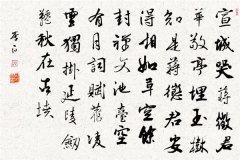 宣城哭蔣徵君
華敬亭埋玉樹
知是蔣徵君安
得相如草空餘
封禪文池臺空
有月詞賦舊凌
雲獨掛延陵劍
秋在古墳